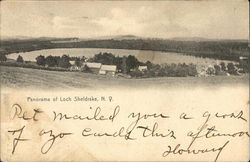 Panorama of Loch Sheldrake, N. Y.
Pet mailed you a great
of 20 cards this afternoon
Howard